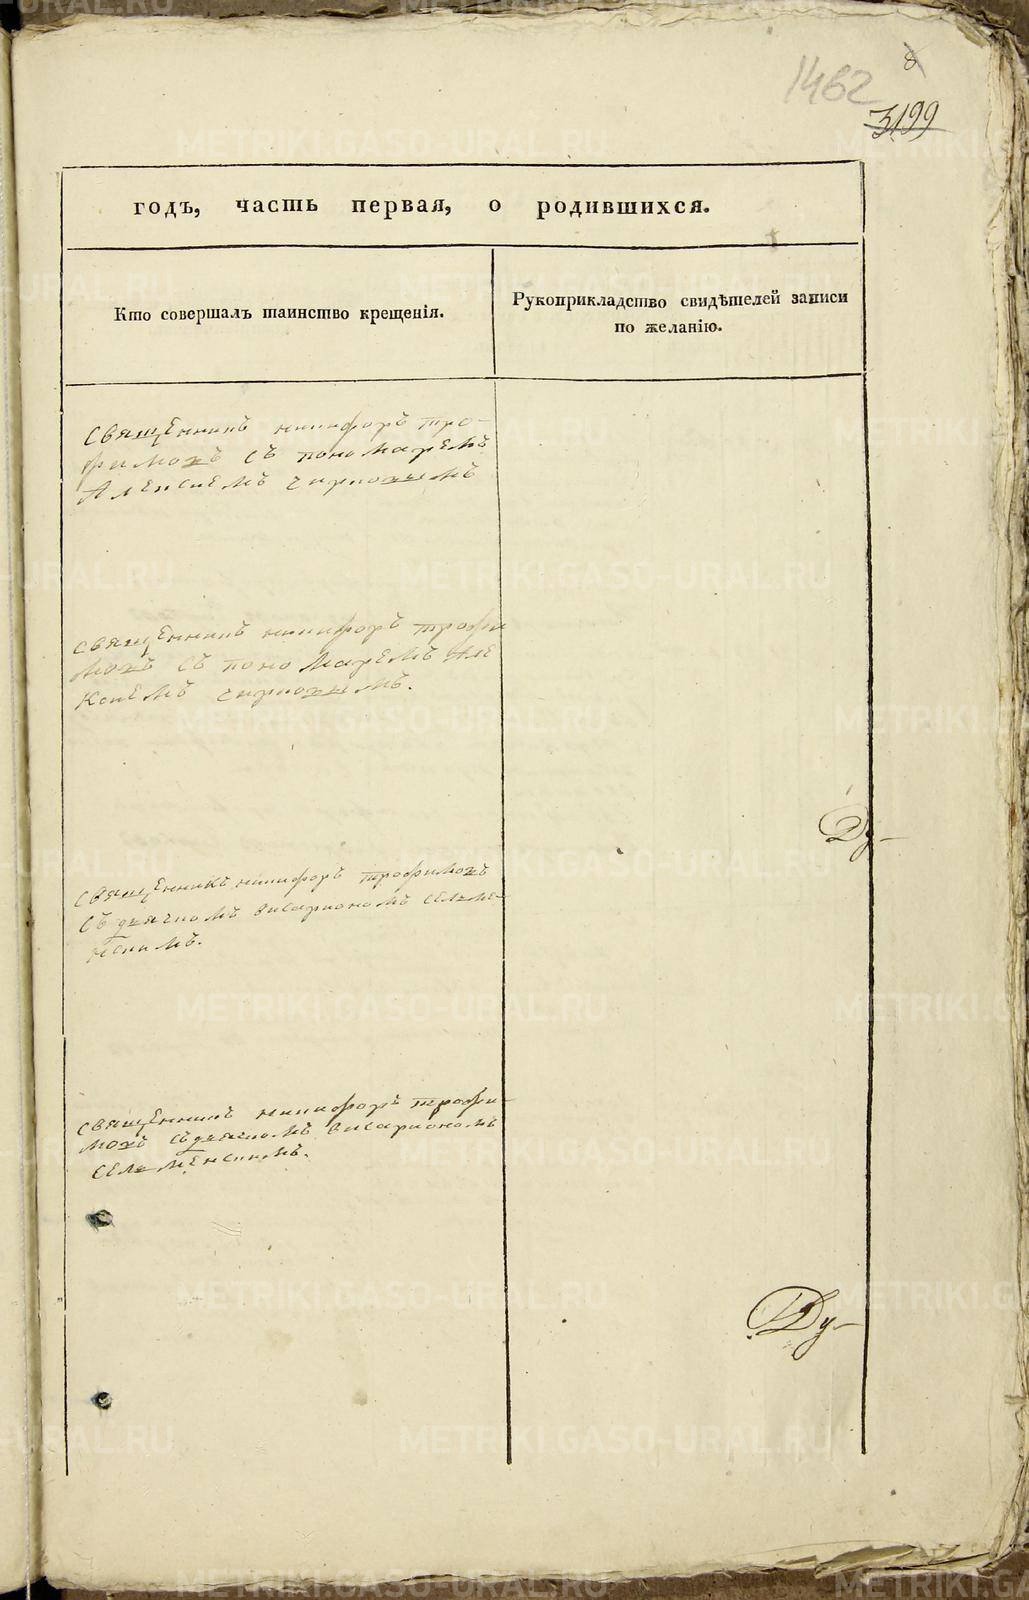 8
1462
3199
годъ, часть первая, о родившихся.
Кто совершалъ таинство крещенія.
Рукоприкладство свидѣтелей записи
по желанію.
священникъ никифоръ тро-
фимовъ съ пономаремъ
Алексѣемъ
священникъ никифоръ трофи
мовъ съ пономаремъ Але
ксѣемъ
Ду-
священникъ никифоръ трофимовъ
съ дьячкомъ висарiономъ селме-
нскимъ.
священникъ никифоръ трофи-
мовъ съ дьячкомъ висарiономъ
селменскимъ.
Ду-
METRIKI.GASO-URAL.RU